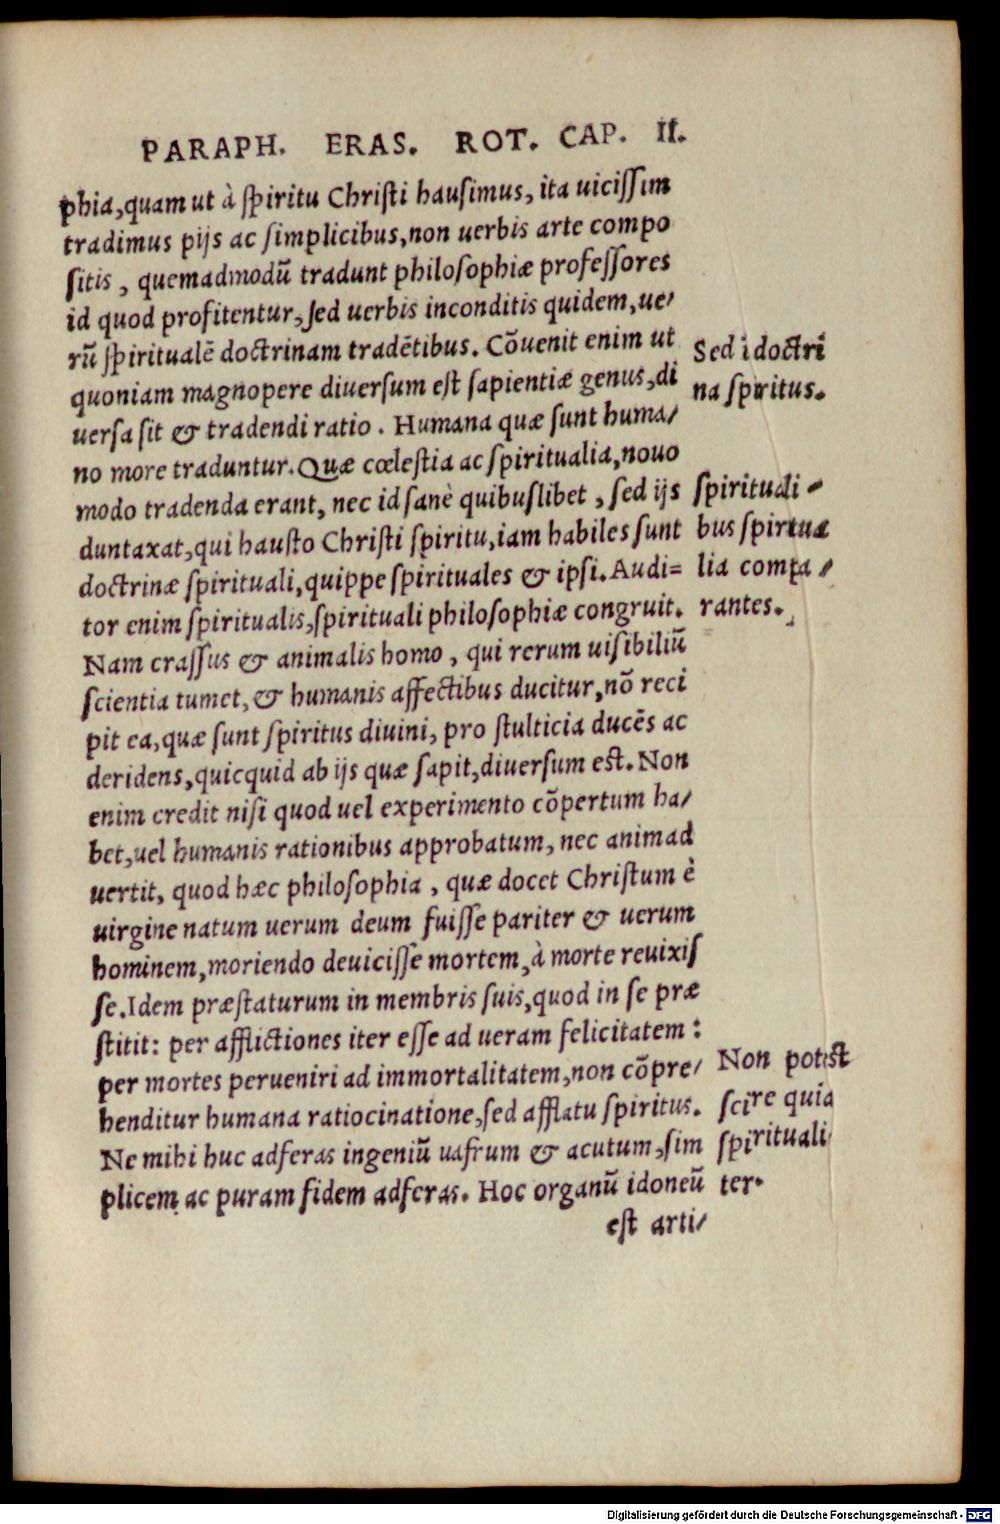 PARAPH. ERAS. ROT. CAP. II.
phia,quam ut à ſpiritu Chriſti hauſimus, ita uiciſſim
tradimus pijs ac ſimplicibus,non uerbis arte compo
ſitis , quemadmodũ tradunt philoſophiæ profeſſores
id quod profitentur,ſed uerbis inconditis quidem,ue/
rũ ſpiritualẽ doctrinam tradẽtibus. Cõuenit enim ut
quoniam magnopere diuerſum eſt ſapientiæ genus,di
uerſa ſit & tradendi ratio . Humana quæ ſunt huma/
no more traduntur. Quæ cœleſtia ac ſpiritualia,nouo
modo tradenda erant, nec id ſanè quibuſlibet , ſed ijs
duntaxat,qui hauſto Chriſti ſpiritu,iam habiles ſunt
doctrinæ ſpirituali,quippe ſpirituales & ipſi. Audi=
tor enim ſpiritualis,ſpirituali philoſophiæ congruit.
Nam craſſus & animalis homo , qui rerum uiſibiliũ
ſcientia tumet, & humanis affectibus ducitur,nõ reci
pit ea,quæ ſunt ſpiritus diuini, pro ſtulticia ducẽs ac
deridens,quicquid ab ijs quæ ſapit,diuerſum eſt. Non
enim credit niſi quod uel experimento cõpertum ha/
bet,uel humanis rationibus approbatum, nec animad
uertit, quod hæc philoſophia , quæ docet Chriſtum è
uirgine natum uerum deum fuiſſe pariter & uerum
hominem,moriendo deuiciſſe mortem,à morte reuixiſ
ſe.Idem præſtaturum in membris ſuis,quod in ſe præ
ſtitit: per afflictiones iter eſſe ad ueram felicitatem :
per mortes perueniri ad immortalitatem,non cõpre/
henditur humana ratiocinatione,ſed afflatu ſpiritus.
Ne mihi huc adferas ingeniũ uafrum & acutum,ſim
plicem ac puram fidem adferas. Hoc organũ idoneũ
eſt arti/
Sed ĩ doctri
na ſpiritus.
ſpirituali-
bus ſpiritua
lia compa/
rantes.
Non poteſt
ſcire quia
ſpirituali
ter.
Digitalisierung gefördert durch die Deutsche Forschungsgemeinschaft - DFG